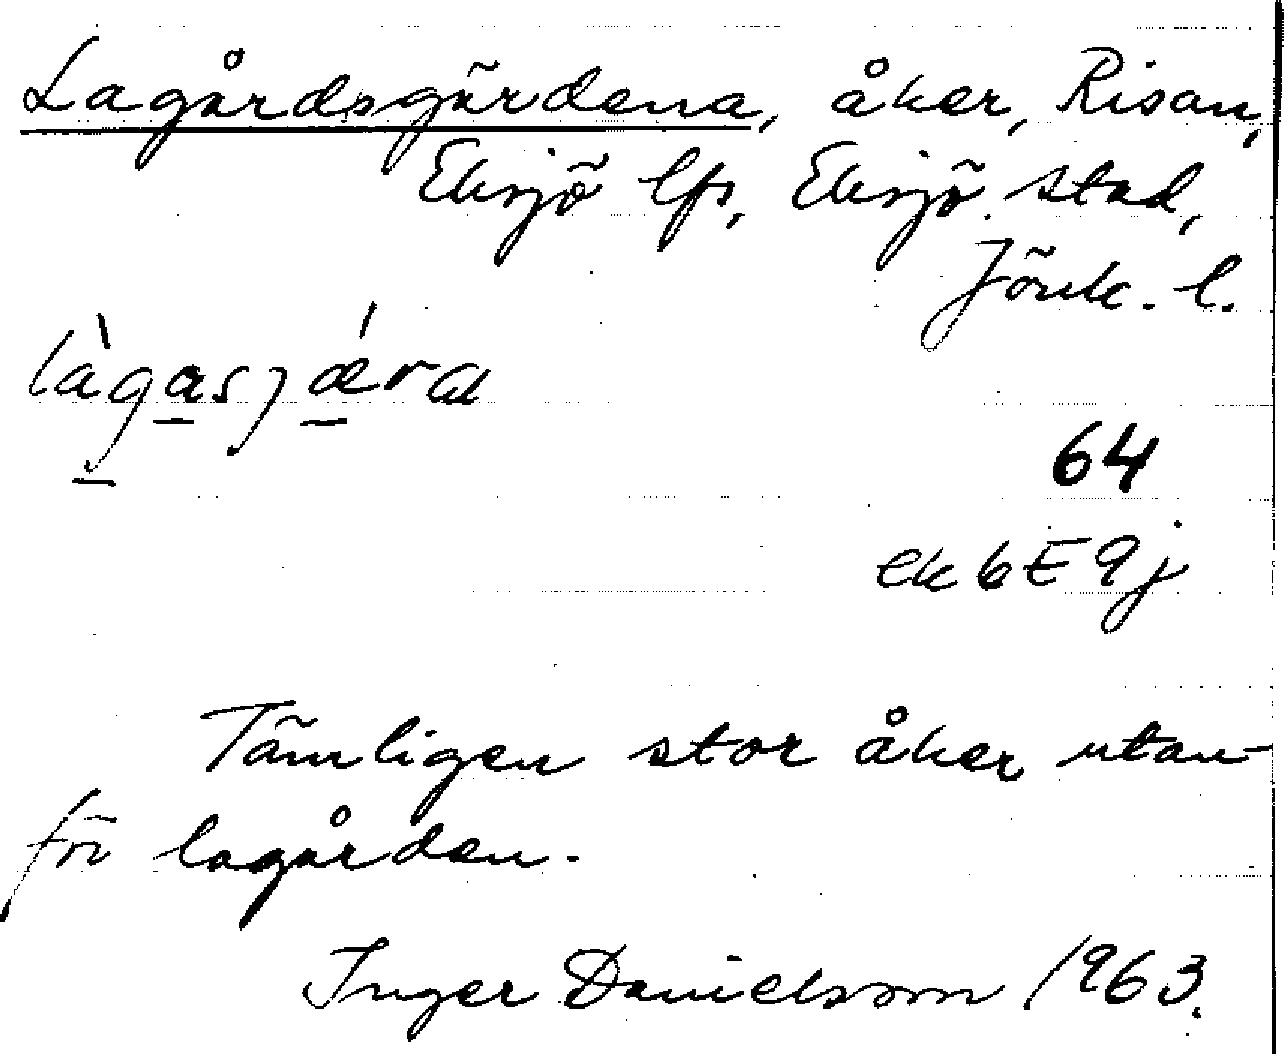 Lagårdsgärdena, åker, Risan,
Eksjö lfs, Eksjö stad,
Jönk. l.
làgasjǽra
64
ek 6E 9j
Tämligen stor åker utan-
för lagården.
Inger Danielsson 1963.